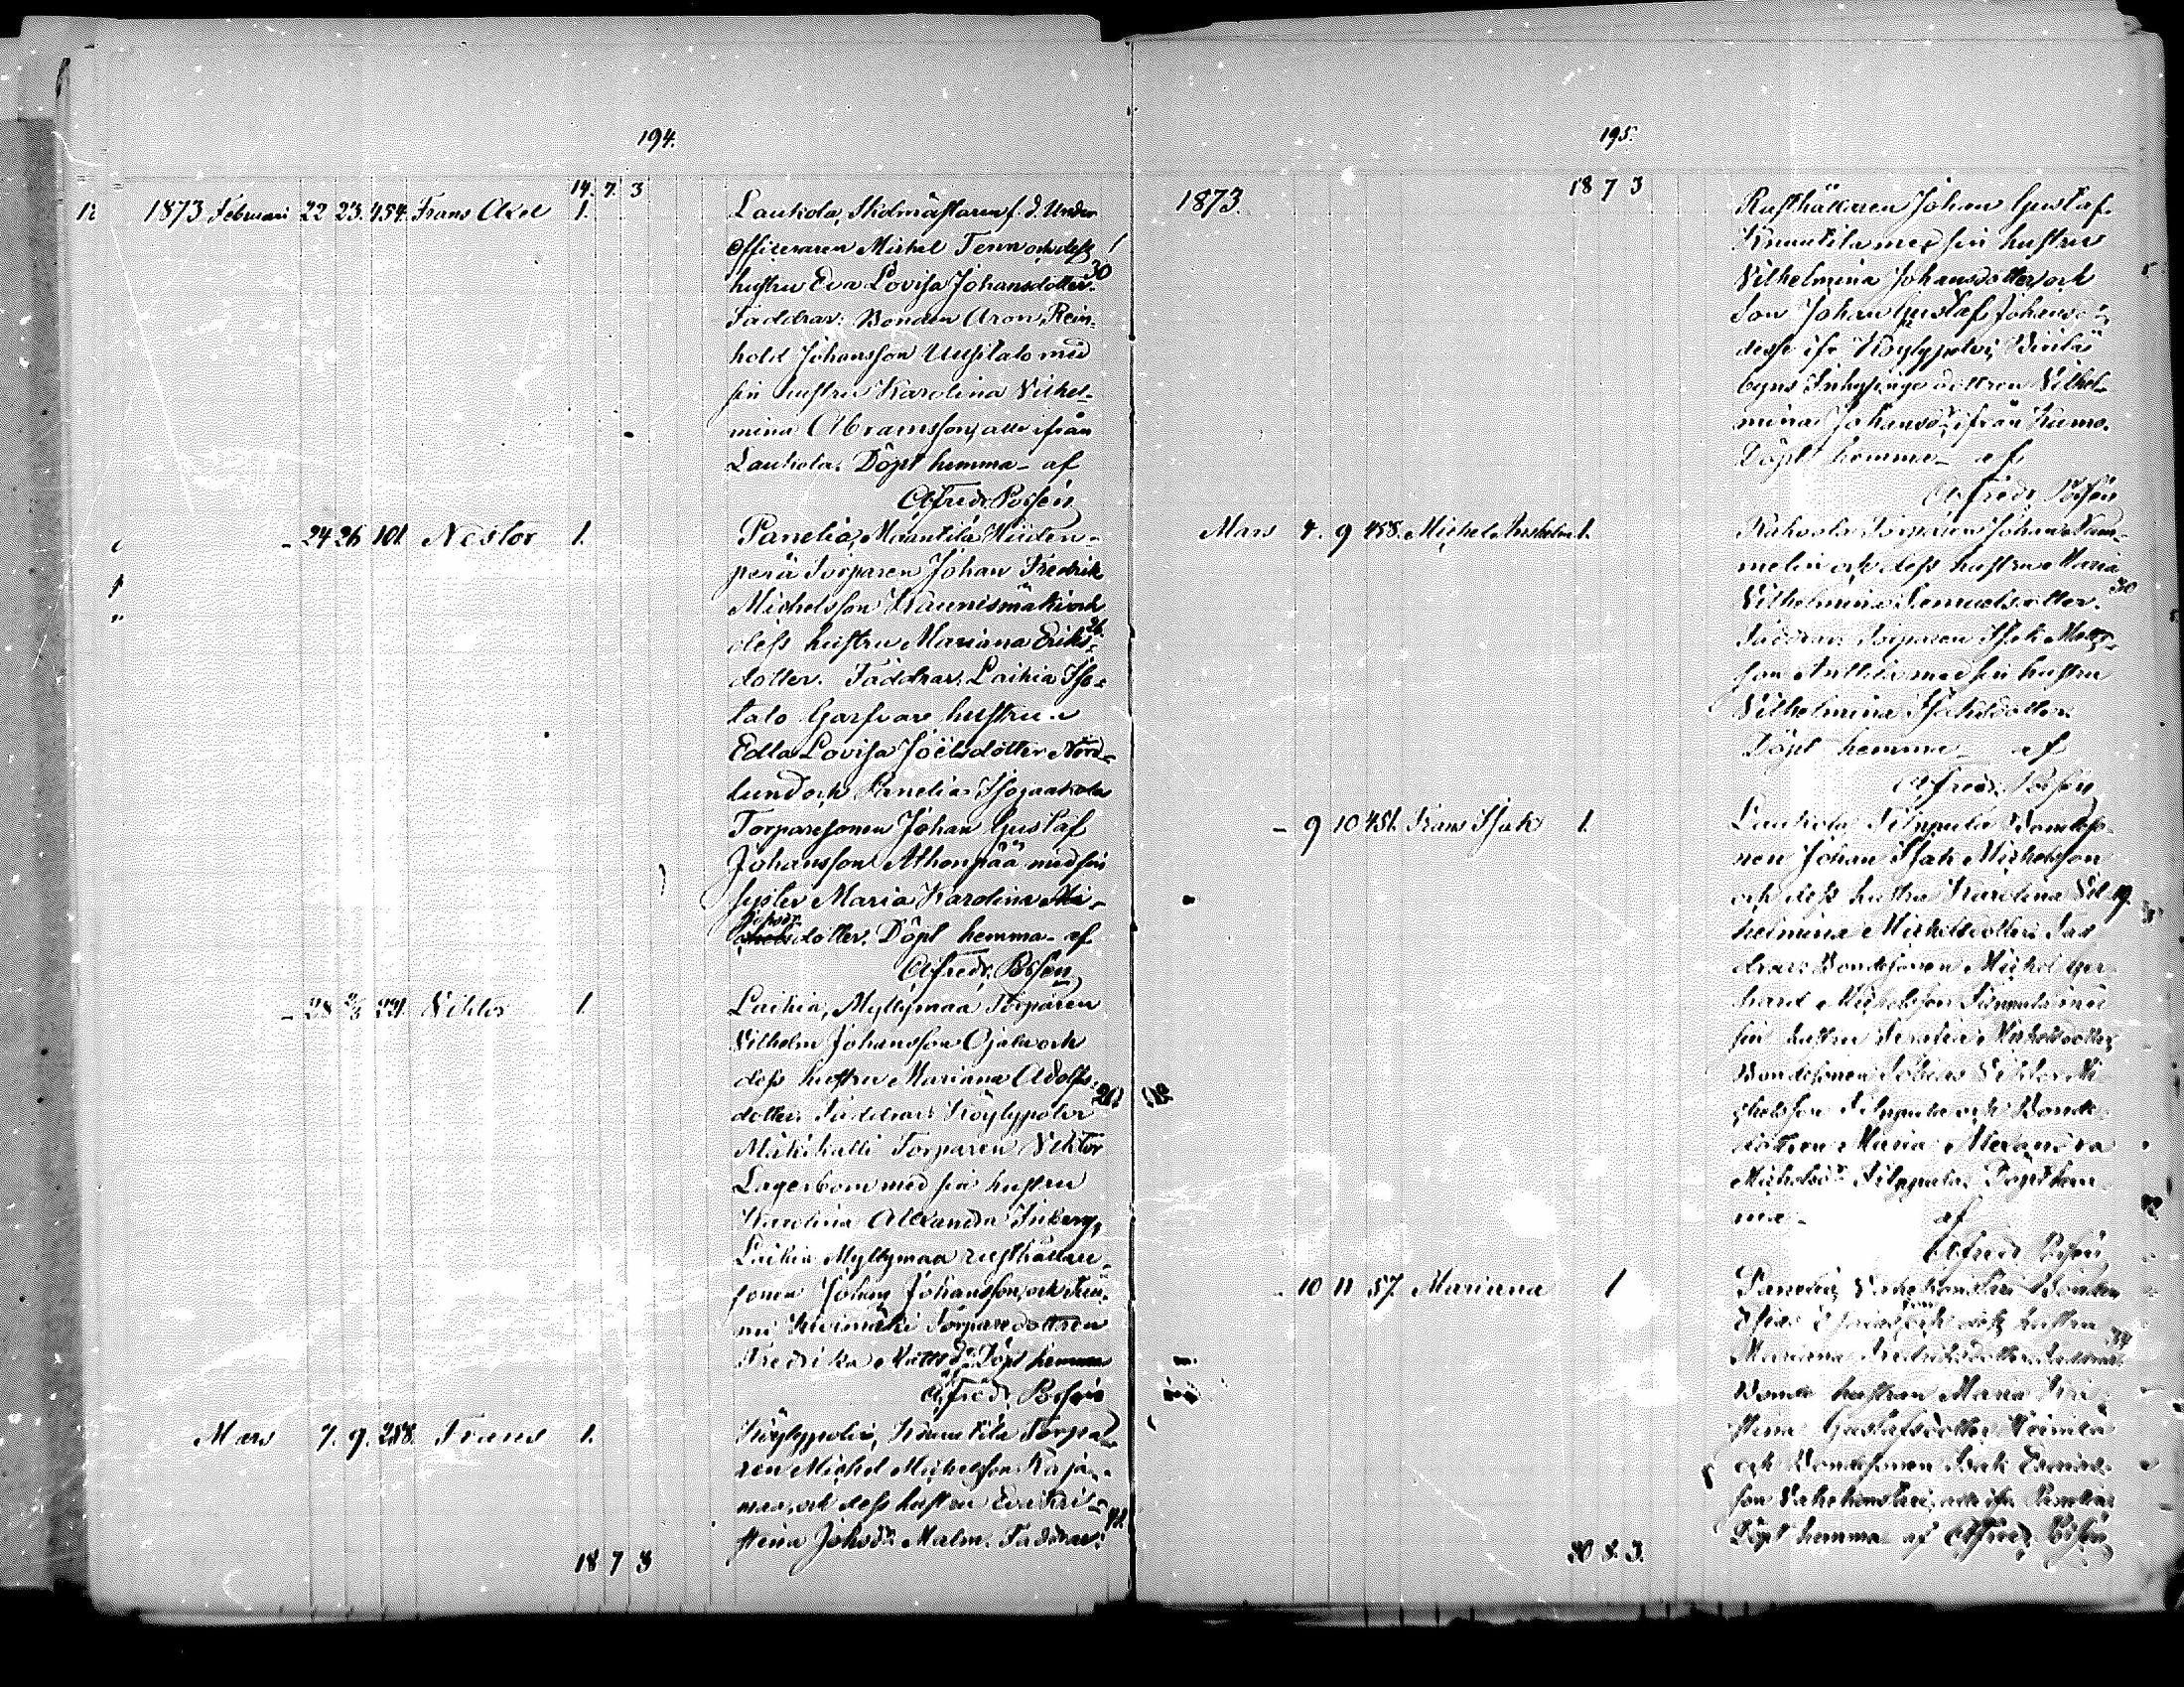 194.
14. 7. 3
1873 Februari 22 23. 454. Frans Axel 1. Laukola, Skolmästaren f. d. Under
officeraren Michel Tenn och dess
hustru Eva Lovisa Johansdotter. 30
Faddrar: Bonden Aron Rein-
hold Johansson Uusitalo med
sin hustru Karolina Vilhel-
mina Abramsson, alla ifrån
Laukola. Döpt hemma af
Alfred Bosén
- 24 26 101. Nestor 1. Panelia, Mäentila Hiiden-
perä Torparen Johan Fredrik
Michelsson Kaunismäki och
dess hustru Mariana Eriks- 26.
dotter. Faddrar: Laihia Iso-
talo Garfvare hustrun
Edla Lovisa Joëlsdotter Nord-
lund och Panelia Isojaakola
Torparesonen Johan Gustaf
Johansson Ahonpää med sin
syster Maria Karolina
Johans dotter. Döpt hemma af
Alfred Bosén
- 28 2/3 221. Viktor 1. Laihia, Myllymaa Torparen
Vilhelm Johansson Ojala och
dess hustru Mariana Adolfs-
dotter. Faddrar: Köylypolvi
Torparen Viktor
Lagerbom med sin hustru
Karolina Alexandra Inberg,
Laihia Myllymaa rusthållare-
sonen Johan Johansson och
Torparedottren
Fredrika Döpt hemma
af Alfred Bosén
Mars 7. 9. 288. Frans 1. Köylypolvi, Knuutila Torpa-
ren Michel Michelsson Raja-
maa, och dess hustru Eva Kri-
stina Johsdr Malm. Faddrar:
18 7 3

195.
18 7 3
1873. Rusthållaren Johan Gustaf
Knuutila med sin hustru
Vilhelmina Johansdotter och
Son Johan Gustaf Johans-
desse ifr Köylypolvi,
byns Inhysinge dottren Vilhel-
mina Johansdr ifrån Kiimo.
Döpt hemma af
Alfred Bosén
Mars 7. 9 458. Michel 1. Torparen Johan
och dess hustru Maria
Vilhelmina Samuelsdotter. 30
Faddrar: Torparen Isak Matts-
son Anttila med sin hustru
Vilhelmina Isaksdotter.
Döpt hemma af
Alfred Bosén
- 9 10 451. Frans Isak 1. Laukola Filppula Bondeso-
nen Johan Isak Michelsson
och dess hustru Karolina Vil- 19.
helmina Michelsdotter. Fad-
drar: Bondesonen Michel Ger-
hard Michelsson Filppula med
sin hustru Serafia Michelsdotter,
Bondesonen Tobias Viktor Mi-
chelsson Filppula och Bonde-
dottren Maria Alexandra
Michelsdr Filppula. Döpt hem-
ma af
Alfred Bosén
- 10 11 57. Mariana 1 Panelia, Bonden
Esaias och dess hustru
Mariana Fredriksdotter. Faddrar:
Bonde hustrun Maria Kri-
stina Gustafsdotter
och Bondesonen Isak
son alla ifr. Panelia
Döpt hemma af Alfred Bosén
30 8. 3.